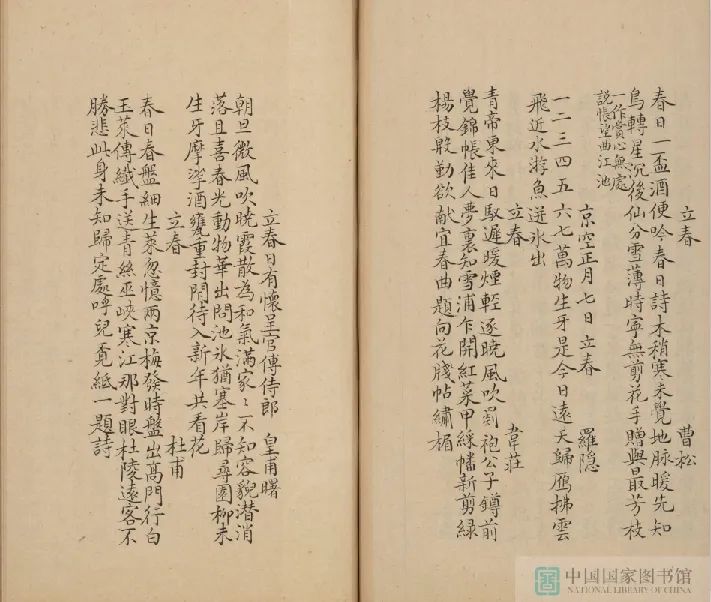 立春 曹松
春日一盃酒便吟春日詩木稍寒未覺地脉暖先知
鳥轉星沉後仙分雪薄時寧無剪花手贈與最芳枝
一作賞心無處
説悵望曲江池
京空正月七日立春 羅隐
一二三四五六七萬物生牙是今日遠天歸雁拂雲
飛近水游魚迸氷出
立春 韋莊
青帝東來日馭遲暖煙輕逐曉風吹罽袍公子鐏前
覺錦帳佳人夢裏知雪浦乍開紅菜甲綵幡新剪緑
楊枝殷勤欲献宜春曲題向花牋帖繡楣
立春日有懷呈宫傅侍郎 皇甫曙
朝旦微風吹曉霞散為和氣滿家〻不知容貌潜消
落且喜春光動物華出問池氷猶塞岸歸尋園柳未
生牙摩挲酒甕重封閉待入新年共看花
立春 杜甫
春日春盤細生菜忽憶兩京梅發時盤出髙門行白
玉菜傳纖手送青絲巫峽寒江那對眼杜陵遠客不
勝悲此身未知歸定處呼兒覓紙一題詩
中国国家图书馆
NATIONAL LIBRARY OF CHINA